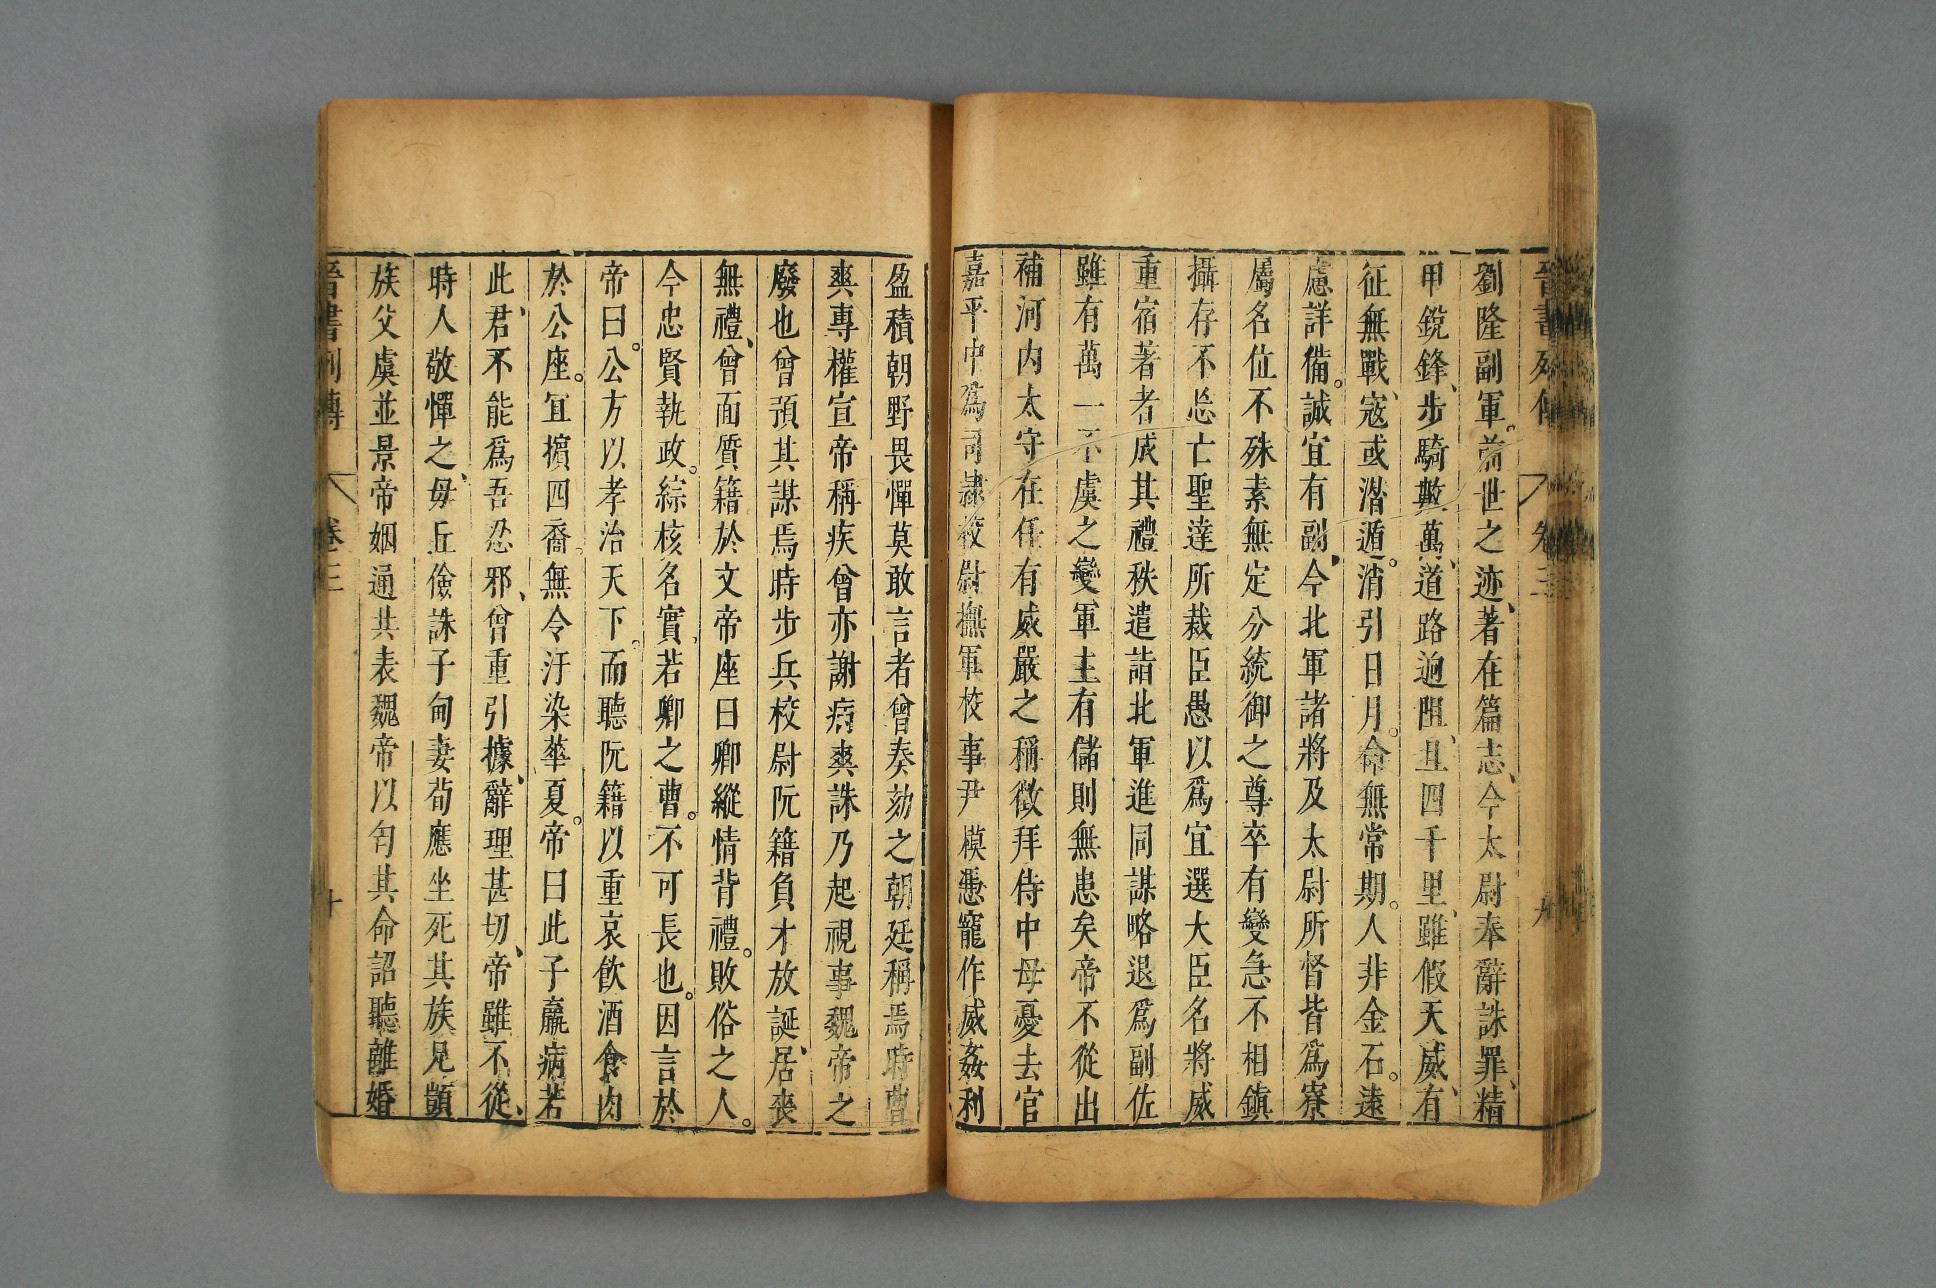 晉書列傳 卷三 九
劉隆副軍前世之迹著在篇志今太尉奉辭誅罪精
甲銳鋒步騎數萬道路迥阻且四千里雖假天威有
征無戰寇或潛遁消引日月命無常期人非金石遠
慮詳備誠宜有副今北軍諸將及太尉所督皆爲寮
屬名位不殊素無定分統御之尊卒有變急不相鎮
攝存不忘亡聖達所裁臣愚以爲宜選大臣名將威
重宿著者成其禮秩遣詣北軍進同謀略退爲副佐
雖有萬一不虞之變軍主有儲則無患矣帝不從出
補河内太守在任有威嚴之稱徵拜侍中母憂去官
嘉平中爲司隸校尉撫軍校事尹模憑寵作威姦利
盈積朝野畏憚莫敢言者曾奏劾之朝廷稱焉時曹
爽專權宣帝稱疾曾亦謝病爽誅乃起視事魏帝之
廢也曾預其謀焉時步兵校尉阮籍負才放誕居喪
無禮曾面質籍於文帝座曰卿縱情背禮敗俗之人
今忠賢執政綜核名實若卿之曹不可長也因言於
帝曰公方以孝治天下而聽阮籍以重哀飲酒食肉
於公座宜擯四裔無令汙染華夏帝曰此子羸病若
此君不能爲吾忍邪曾重引據辭理甚切帝雖不從
時人敬憚之毋丘儉誅子甸妻荀應坐死其族兄顗
族父虞並景帝姻通共表魏帝以匄其命詔聽離婚
晉書列傳 卷三 十